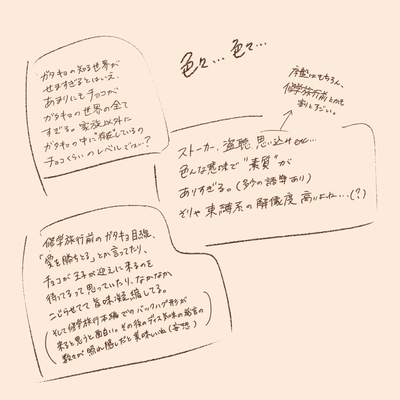 色々…色々…
ガタキョの知る世界が
せますぎるとはいえ、
あまりにもチョコが
ガタキョの世界の全て
すぎる。家族以外に
ガタキョの中に"存在"しているの
チョコくらいのレベルでは…?
序盤はもちろん、
修学旅行前とかも
割とすごい。
ストーカー、盗聴、思い込みetc…
色んな意味で"素質"が
ありすぎる。(多少の語弊あり)
そりゃ束縛系の解像度高いよね…(?)
修学旅行前のガタキョ目線、
「愛を勝ちとる」とか言ってたり、
チョコが王子が迎えに来るのを
待ってるって思っていたり、なかなか
こじらせてて旨味凝縮してる。
そして修学旅行本編でのバックハグ形が
来ると思うと面白い。その後のディス気味の発言の
数々が照れ隠しだと美味しいね(妄想)